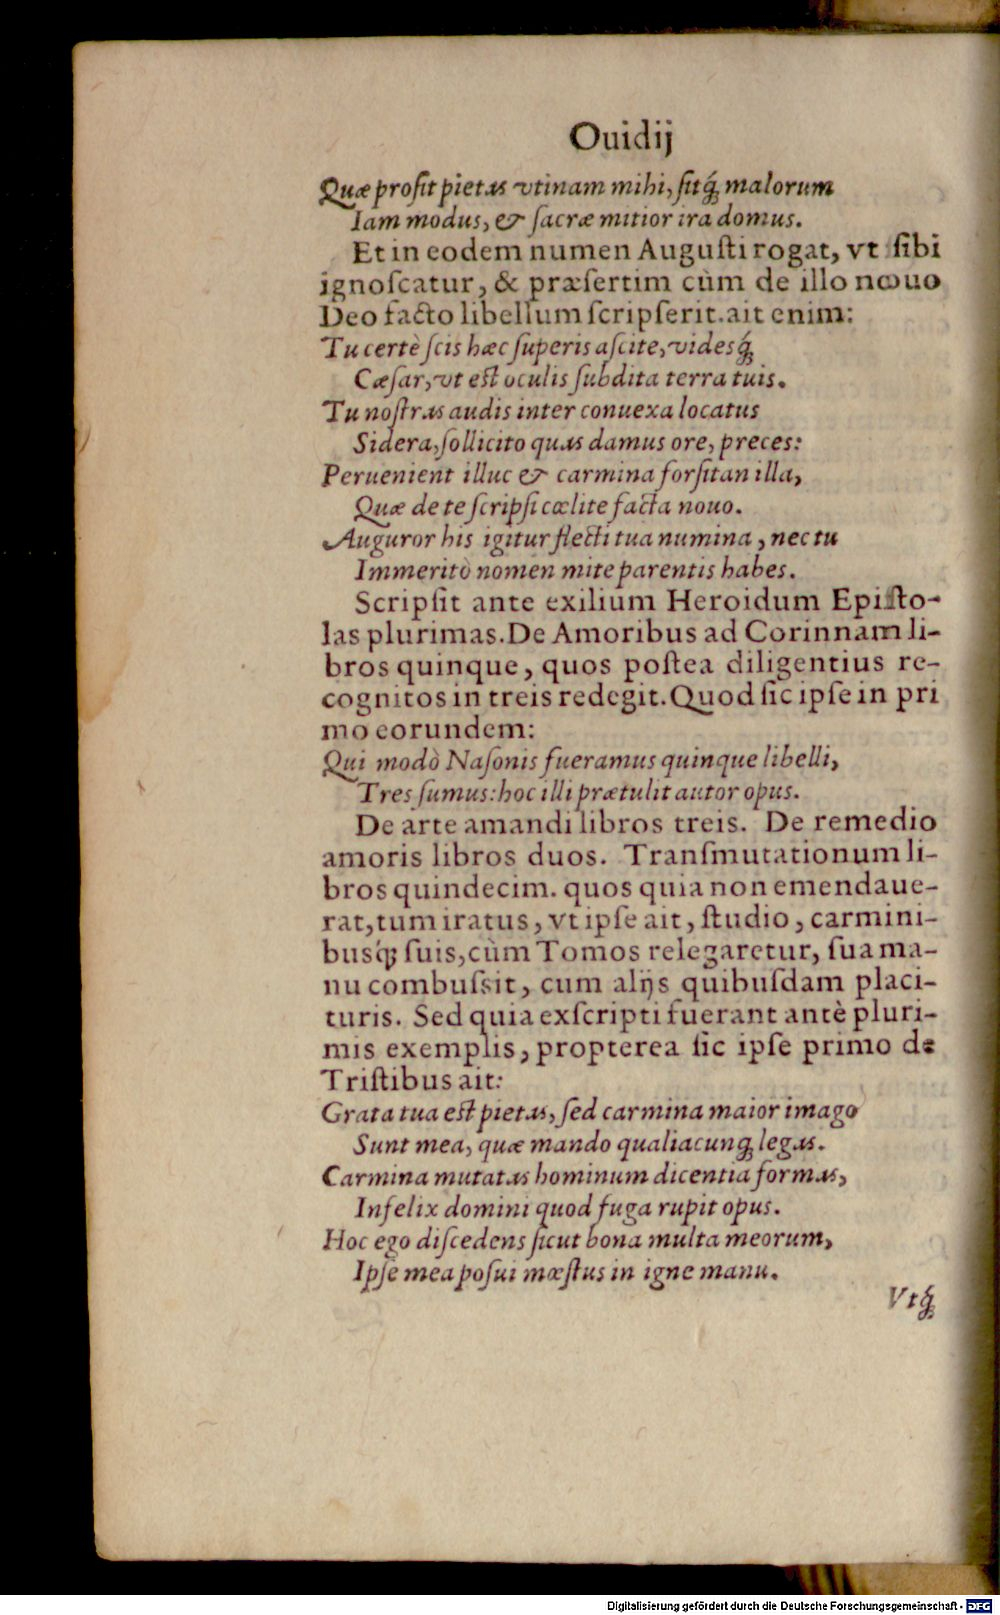 Ouidij
Quæ prosit pietas vtinam mihi, sitq́; malorum
Iam modus, & sacræ mitior ira domus.
Et in eodem numen Augusti rogat, vt sibi
ignoscatur, & præsertim cùm de illo nouo
Deo facto libellum scripserit. ait enim:
Tu certè scis hæc superis ascite, videsq́;
Cæsar, vt est oculis subdita terra tuis.
Tu nostras audis inter conuexa locatus
Sidera, sollicito quas damus ore, preces:
Peruenient illuc & carmina forsitan illa,
Quæ de te scripsi cœlite facta nouo.
Auguror his igitur flecti tua numina, nec tu
Immeritò nomen mite parentis habes.
Scripsit ante exilium Heroidum Episto-
las plurimas. De Amoribus ad Corinnam li-
bros quinque, quos postea diligentius re-
cognitos in treis redegit. Quod sic ipse in pri
mo eorundem:
Qui modò Nasonis fueramus quinque libelli,
Tres sumus: hoc illi prætulit autor opus.
De arte amandi libros treis. De remedio
amoris libros duos. Transmutationum li-
bros quindecim. quos quia non emendaue-
rat, tum iratus, vt ipse ait, studio, carmini-
busq́; suis, cùm Tomos relegaretur, sua ma-
nu combussit, cum alijs quibusdam placi-
turis. Sed quia exscripti fuerant antè pluri-
mis exemplis, propterea sic ipse primo de
Tristibus ait:
Grata tua est pietas, sed carmina maior imago
Sunt mea, quæ mando qualiacunq; legas.
Carmina mutatas hominum dicentia formas,
Infelix domini quod fuga rupit opus.
Hoc ego discedens sicut bona multa meorum,
Ipse mea posui mœstus in igne manu.
Vtq́;
Digitalisierung gefördert durch die Deutsche Forschungsgemeinschaft - DFG